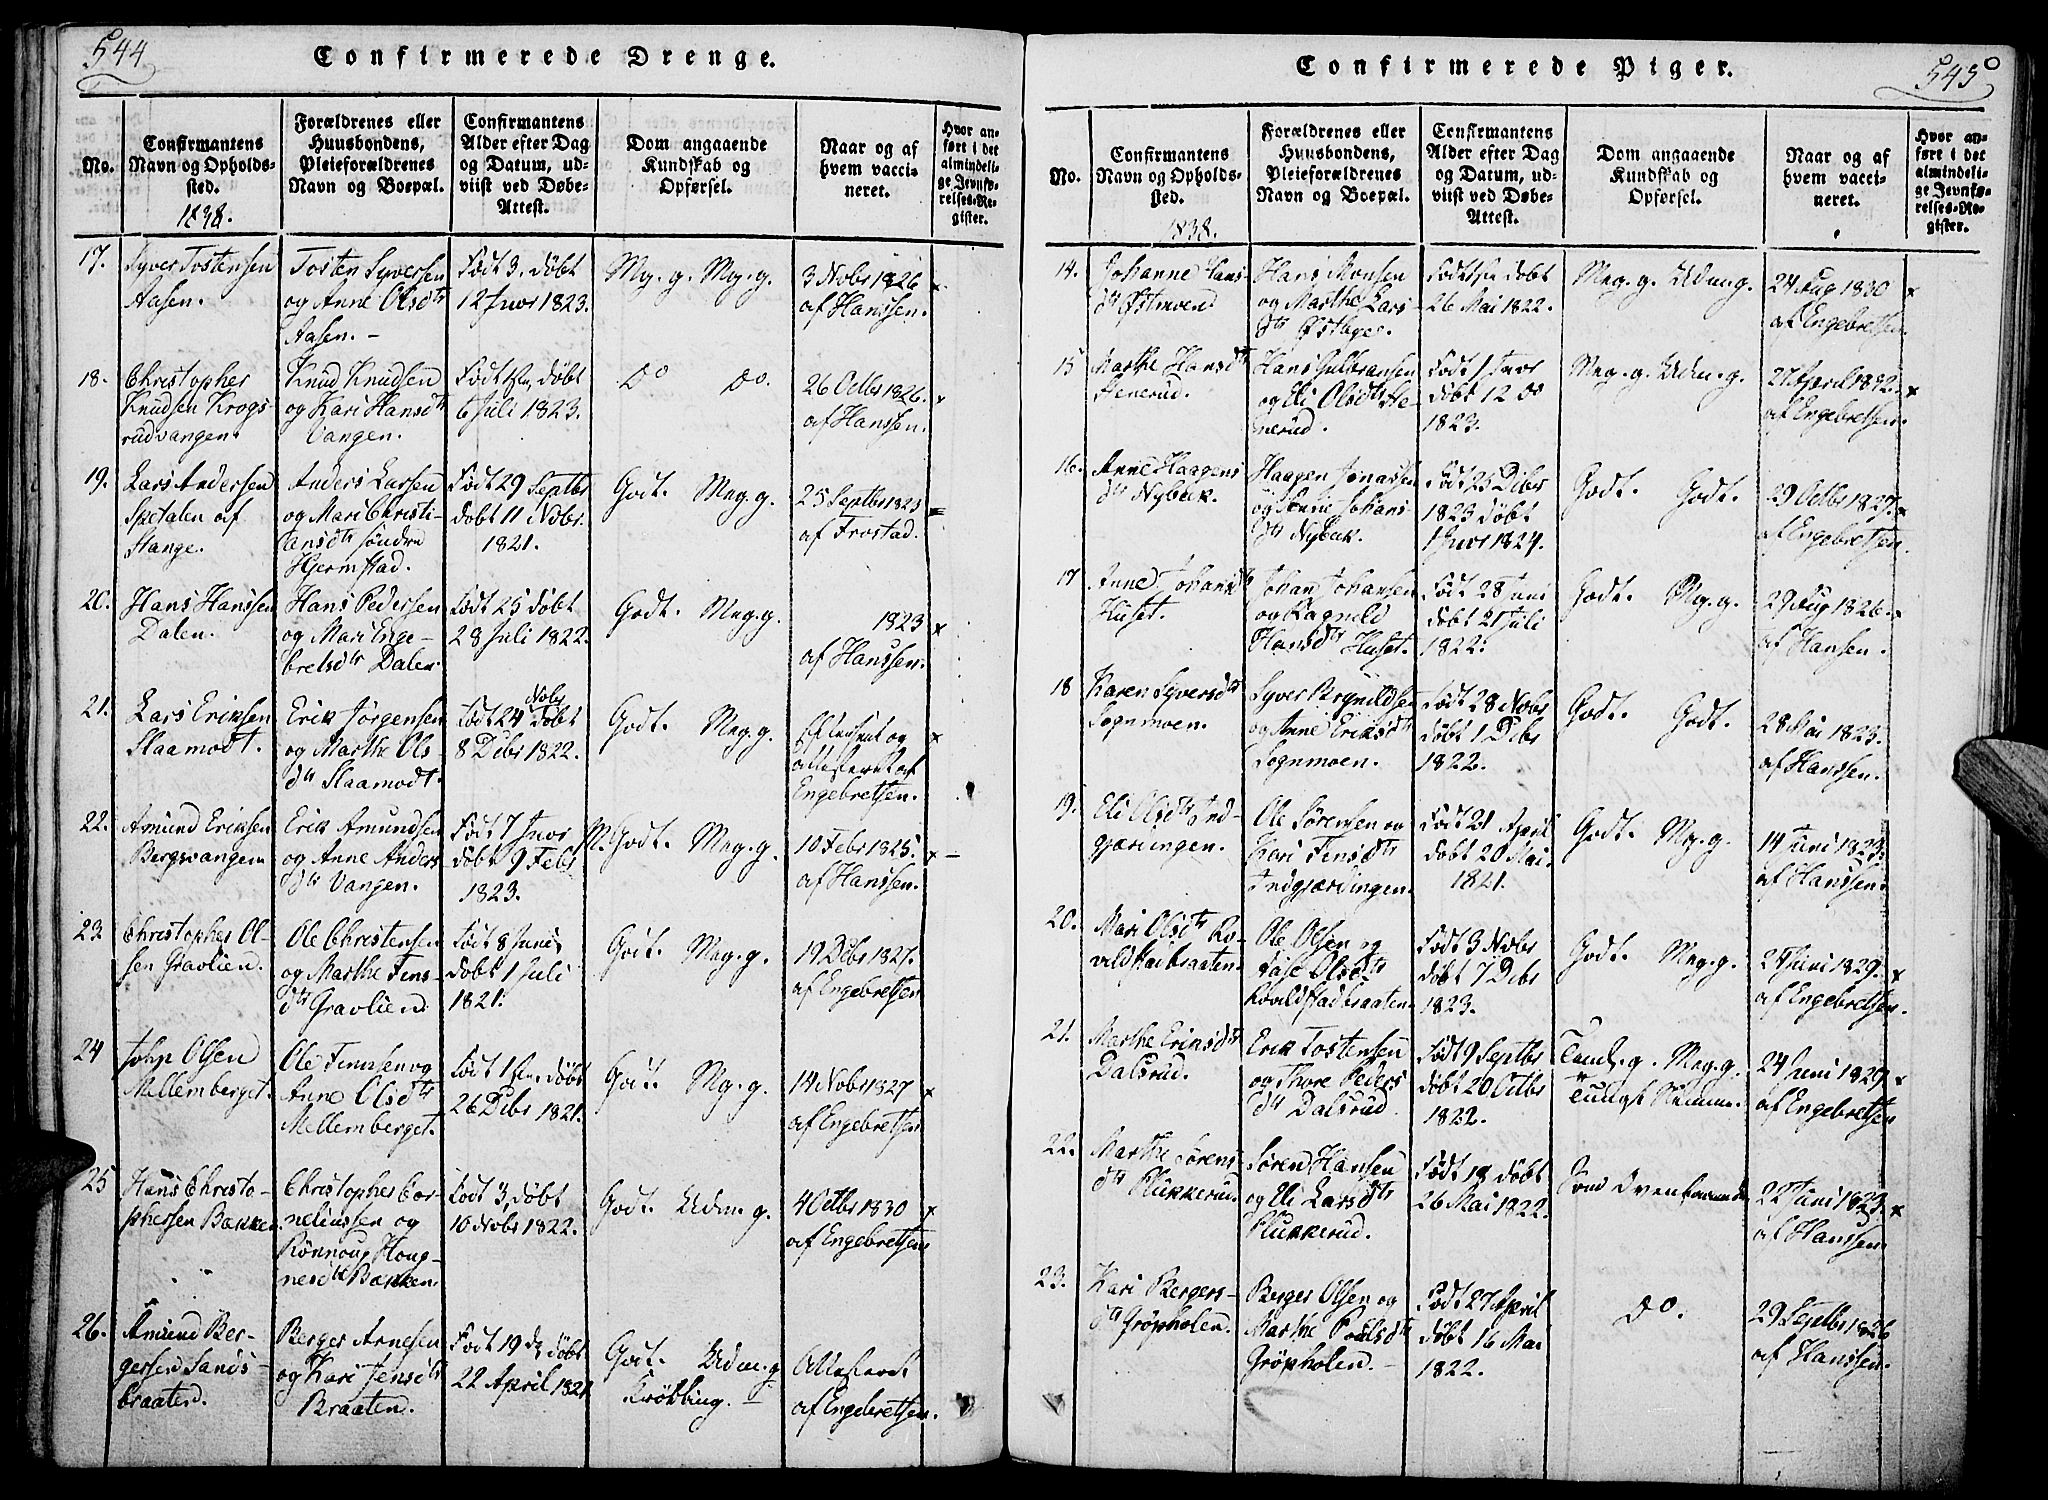 544
Confirmerede Drenge.
No.
Confirmantens
Navn og Opholds-
sted.
1838.
Forældrenes eller
Huusbondens,
Pleieforældrenes
Navn og Boepæl.
Confirmantens
Alder efter Dag
og Datum, ud-
viist ved Døbe-
Attest.
Dom angaaende
Kundskab og
Opførsel.
Naar og af
hvem vacci-
neret.
Hvor an-
ført i det
almindeli-
ge Jevnfø-
relses-Re-
gister.
17.
Syver Tostensen
Aasen.
Tosten Syversen
og Anne Olsdtr
Aasen. -
Født 3. døbt
12 Jnvr 1823.
Mg. g. Mg. g.
3 Nobr 1826
af Hanssen.
18.
Christopher
Knudsen Krogs-
rudvangen.
Knud Knudsen
og Kari Hansdtr
Vangen.
døbt
6 Juli 1823.
Do Do.
26 Octbr 1826.
af Hanssen.
19.
Lars Andersen
Spetalen af
Stange.
Anders Larsen
og Mari Christi-
ansdtr søndre
Hjermstad.
Født 29 Septbr
døbt 11 Nobr.
1821.
Godt. Meg. g.
25 Septbr 1823
af Frostad.
20.
Hans Hanssen
Dalen.
Hans Pedersen
og Mari Enge-
bretsdtr Dalen.
Født 25 døbt
28 Juli 1822.
Godt. Meg. g.
1823
af Hanssen.
21.
Lars Eriksen
Slaamodt.
Erik Jörgensen
og Marthe Ols-
dtr Slaamodt.
Nobr
Født 24 Døbt
8 Debr 1822.
Godt. Meg. g.
og
attesteret af
Engebretsen.
22.
Amund Eriksen
Bergsvangen
Erik Amundsen
og Anne Anders
dtr Vangen.
Født 7 Jnvr
døbt 9 Febr
1823.
M. Godt. Meg. g.
10 Febr 1825.
af Hanssen.
23
Christopher Ol-
sen Gravlien.
Ole Christensen
og Marthe Fins-
dtr Gravlien.
Født 8 Juni
døbt 1 Juli
1821.
Godt. Meg. g.
19 Debr 1827.
af Engebretsen
24
John Olsen
Mellemberget.
Ole Finnsen og
Anne Olsdtr
Mellemberget.
døbt
26 Debr 1821.
Godt. Mg. g.
14 Nobr 1827
af Engebretsen
25
Hans Christo-
phersen Bækken
Christopher Cor-
neliussen og
Rönnoug Houg-
nesdtr Bækken.
Født 3, døbt
10 Nobr 1822.
Godt. Udm. g.
4 Octbr 1830
af Engebretsen
26.
Amund Ber-
gersen Sands-
braaten.
Berger Arnesen
og Kari Jensdtr
Braaten.
Født 19 døbt
22 April 1821
Godt. Udm. g
Krøbling.
Attesteret
af Engebretsen.
545
Confirmerede Piger.
No.
Confirmantens
Navn og Opholds-
sted.
1838.
Forældrenes eller
Huusbondens,
Pleieforældrenes
Navn og Boepæl.
Confirmantens
Alder efter Dag
og Datum, ud-
viist ved Døbe-
Attest.
Dom angaaende
Kundskab og
Opførsel.
Naar og af
hvem vacci-
neret.
Hvor an-
ført i det
almindeli-
ge Jevnfø-
relses-Re-
gister.
14.
Johanne Hans-
dtr Østmoen
Hans Monsen
og Marthe Lars-
dtr
døbt
26 Mai 1822.
Meg. g. Udm. g.
24 Aug 1830
af Engebretsen.
15
Marthe Hansdtr
Stenerud.
Hans Gulbransen
og Eli Olsdtr Ste-
nerud.
Født 1 Jnvr
døbt 12 do
1823.
Meg. g. Udm. g.
27 April 1832.
af Engebretsen.
16.
Anne Haagens
dtr Nybak.
Haagen Jonassen
og Anne Johans-
dtr Nybak.
Født 25 Debr
1823 døbt
1 Jnvr 1824.
Godt. Godt.
29 Octbr 1827.
af Engebretsen.
17
Anne Johansdtr
Huset.
Johan Johansen
og Ragnild
Hansdtr Huset.
Født 28 Juni
døbt 21 Juli
1822.
Godt. Mg. g.
29 Aug 1826.
af Hansen.
18
Karen Syversdtr
Sognmoen.
Syver Brynildsen
og Anne Eriksdtr
Sognmoen.
Født 28 Nobr
døbt 1 Debr
1822.
Godt. Godt.
28 Mai 1823.
af Hanssen.
19.
Eli Olsdtr Ind-
gjæringen.
Ole Sørensen og
Kari Finsdtr
Indgjærdingen.
Født 21 April
døbt 20 Mai.
1821.
Godt. Mg. g.
14 Juni 1823.
af Hanssen.
20.
Mari Olsdtr Ro-
veldstadbraaten.
Ole Olsen og
Olsdtr
Rovildstadbraaten.
Født 3 Nobr
døbt 7 Debr
1823.
Godt. Meg. g.
24 Juni 1829.
af Engebretsen.
21.
Marthe Eriksdtr
Dalsrud.
Erik Tostensen
og Thore Peders
dtr Dalsrud
Født 9 Septbr
døbt 20 Octbr
1822.
Teml. g. Meg. g.
Tungt Nemme.
24 Juni 1829.
af Engebretsen
22.
Marthe Sørens-
dtr Plukkerud.
Søren Hansen
og Eli Larsdtr
Plukkerud.
Født 18 døbt
26 Mai 1822.
Som Ovenfornævnte
22 Juni 1823.
af Hanssen.
23.
Kari Bergers-
dtr Gröpholen.
Berger Olsen og
Marthe Poulsdtr
Gröpholen. -
Født 27 April
døbt 16 Mai
1822.
Do.
29 Septbr 1826
af Hanssen.